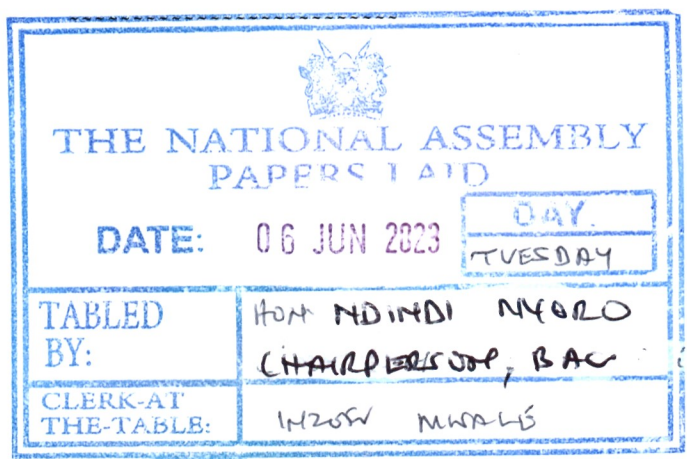 THE NATIONAL ASSEMBLY
PAPERS LAID
DATE: 06 JUN 2023
DAY.
TUESDAY
TABLED BY:
HON NDINDI NYORO
CHAIRPERSON, BAC
CLERK-AT THE-TABLE:
INZOFU MWALE